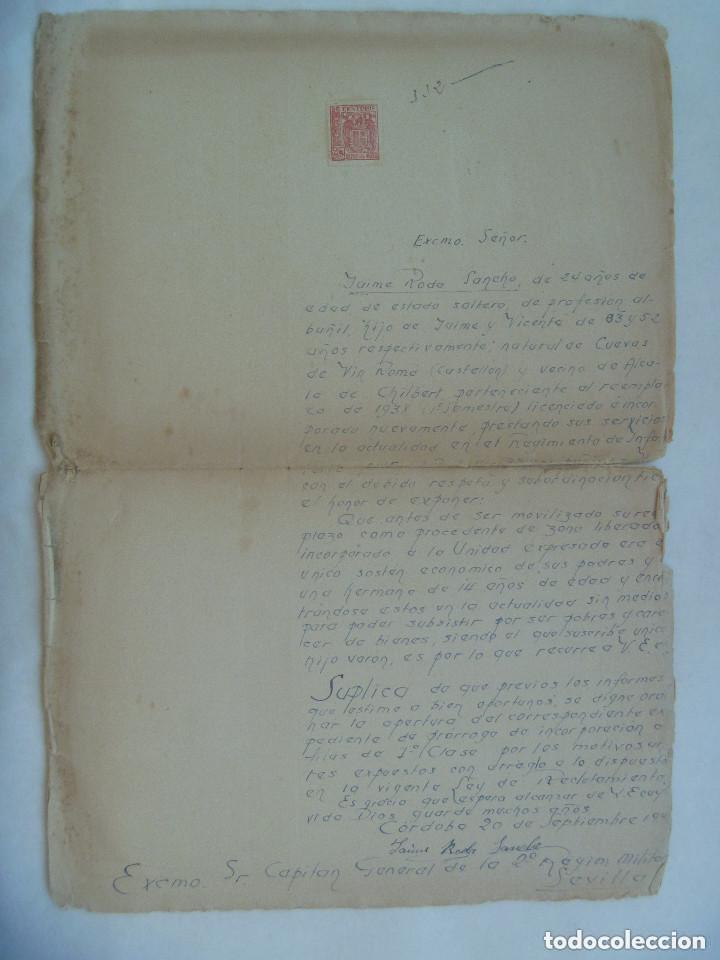 332
Excmo. Señor.
Jaime Roda Sancho, de 24 años de
edad de estado soltero, de profesion al-
bañil, hijo de Jaime y Vicenta de 63 y 52
años respectivamente; natural de Cuevas
de Vin Romá (Castellon) y vecino de Alca-
la de Chilbert, perteneciente al reempla
zo de 1938 (1º Semestre) licenciado é incor
porado nuevamente, prestando sus servicios
en la actualidad en el Regimiento de Infa
con el debido respeto y subordinacion tie
el honor de exponer:
Que antes de ser movilizado su re
plazo como procedente de zona liberada
incorporado a la Unidad expresada era
unico sosten economico de sus padres y
una hermana de 14 años de edad y enco
trándose estos en la actualidad sin medio
para poder subsistir por ser pobres y care
cer de bienes, siendo el que suscribe unic
hijo varon, es por lo que recurre a V.E. e
Suplica de que previos los informes
que estime a bien oportunos, se digne ord
nar la apertura del correspondiente ex
pediente de prorroga de incorporacion a
filas de 1ª Clase por los motivos an
tes expuestos con arreglo a lo dispuest
en la vigente Ley de Reclutamiento.
Es gracia que espera alcanzar de V.E. cuy
vida Dios guarde muchos años
Córdoba 20 de Septiembre 19
Jaime Roda Sancho
Excmo. Sr. Capitan General de la 2ª Region Milita
Sevilla
todocoleccion.net